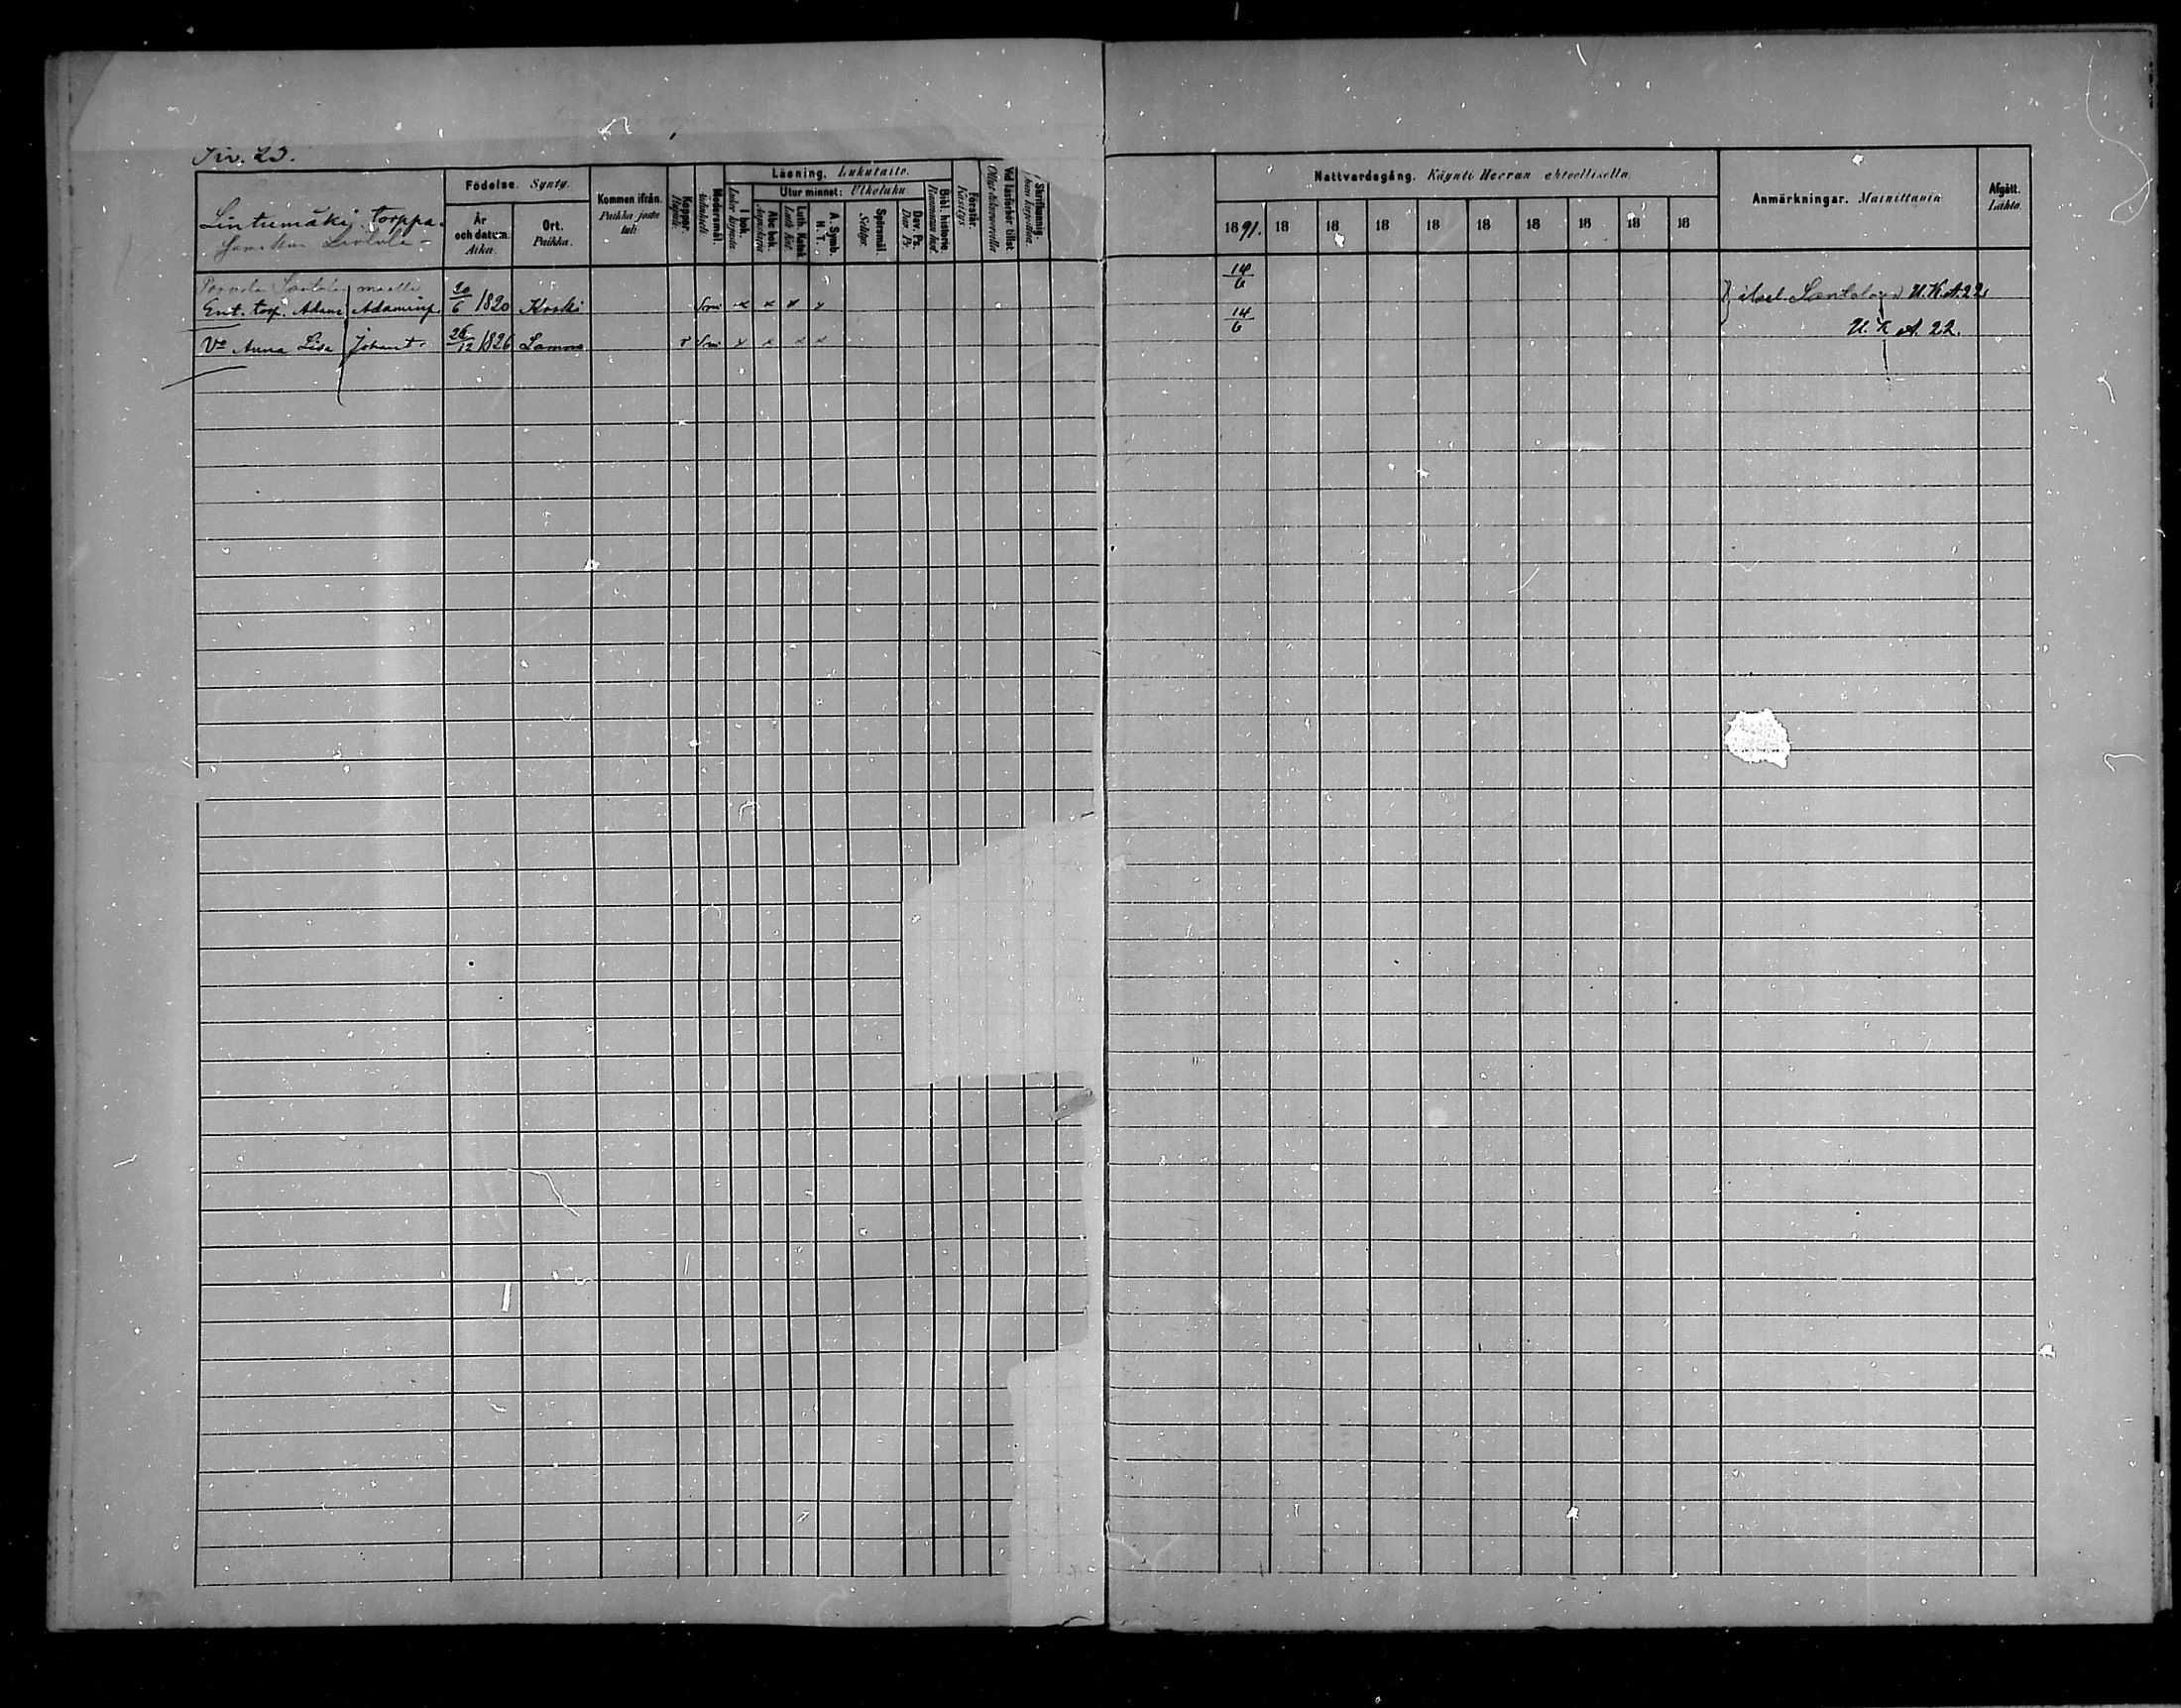 Siv. 23.
Lintumäki, torppa.
Födelse. Synty.
År och datum. Aika.
Ort. Paikka.
Kommen ifrån. Paikka josta tuli
Koppor. Rupuli.
Modersmål. Äidinkieli.
Läsning. Lukutaito.
I bok. Lukee kirjasta.
Utur minnet: Ulkoluku.
Abc bok. Aapiskirja
Luth. Katek. Luth. Kat.
A. Symb. H. T.
Spörsmål. Selitys.
Dav. Ps. Dav. Ps.
Bibl. historie
Förstår. Käsitys.
Vid läsförhör tillst.
Skrifkunnig.
Nattvardsgång. Käynti Herran ehtoollisella.
1891. 18 18 18 18 18 18 18 18 18
Anmärkningar. Muistettavia
Afgått. Lähtö.
Ent. torp. Adam Adaminp. 20/6 1820 Koski Smi x x x x 14/6 U.K.A. 22.
Vo Anna Lisa Johant. 26/12 1826 Lammi r Smi x x x x 14/6 U. K A. 22.